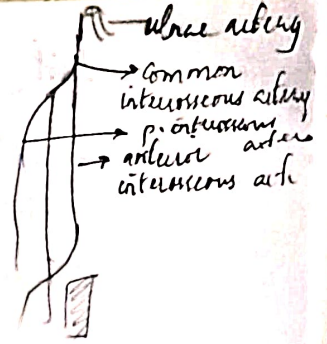 ulnar artery
common
interosseous artery
p. interosseous
artery
anterior
interosseous art